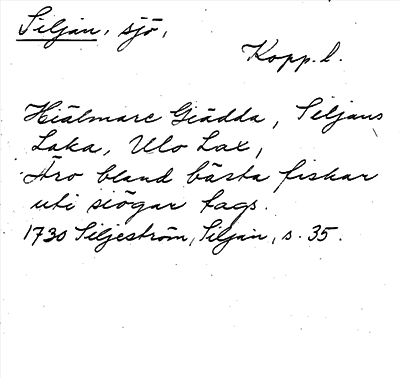 Siljan, sjö,
Kopp. l.
Hiälmare Giädda, Siljans
Laka, Ulo Lax,
Äro bland bästa fiskar
uti siögar tags.
1730 Siljeström, Siljan, s. 35.